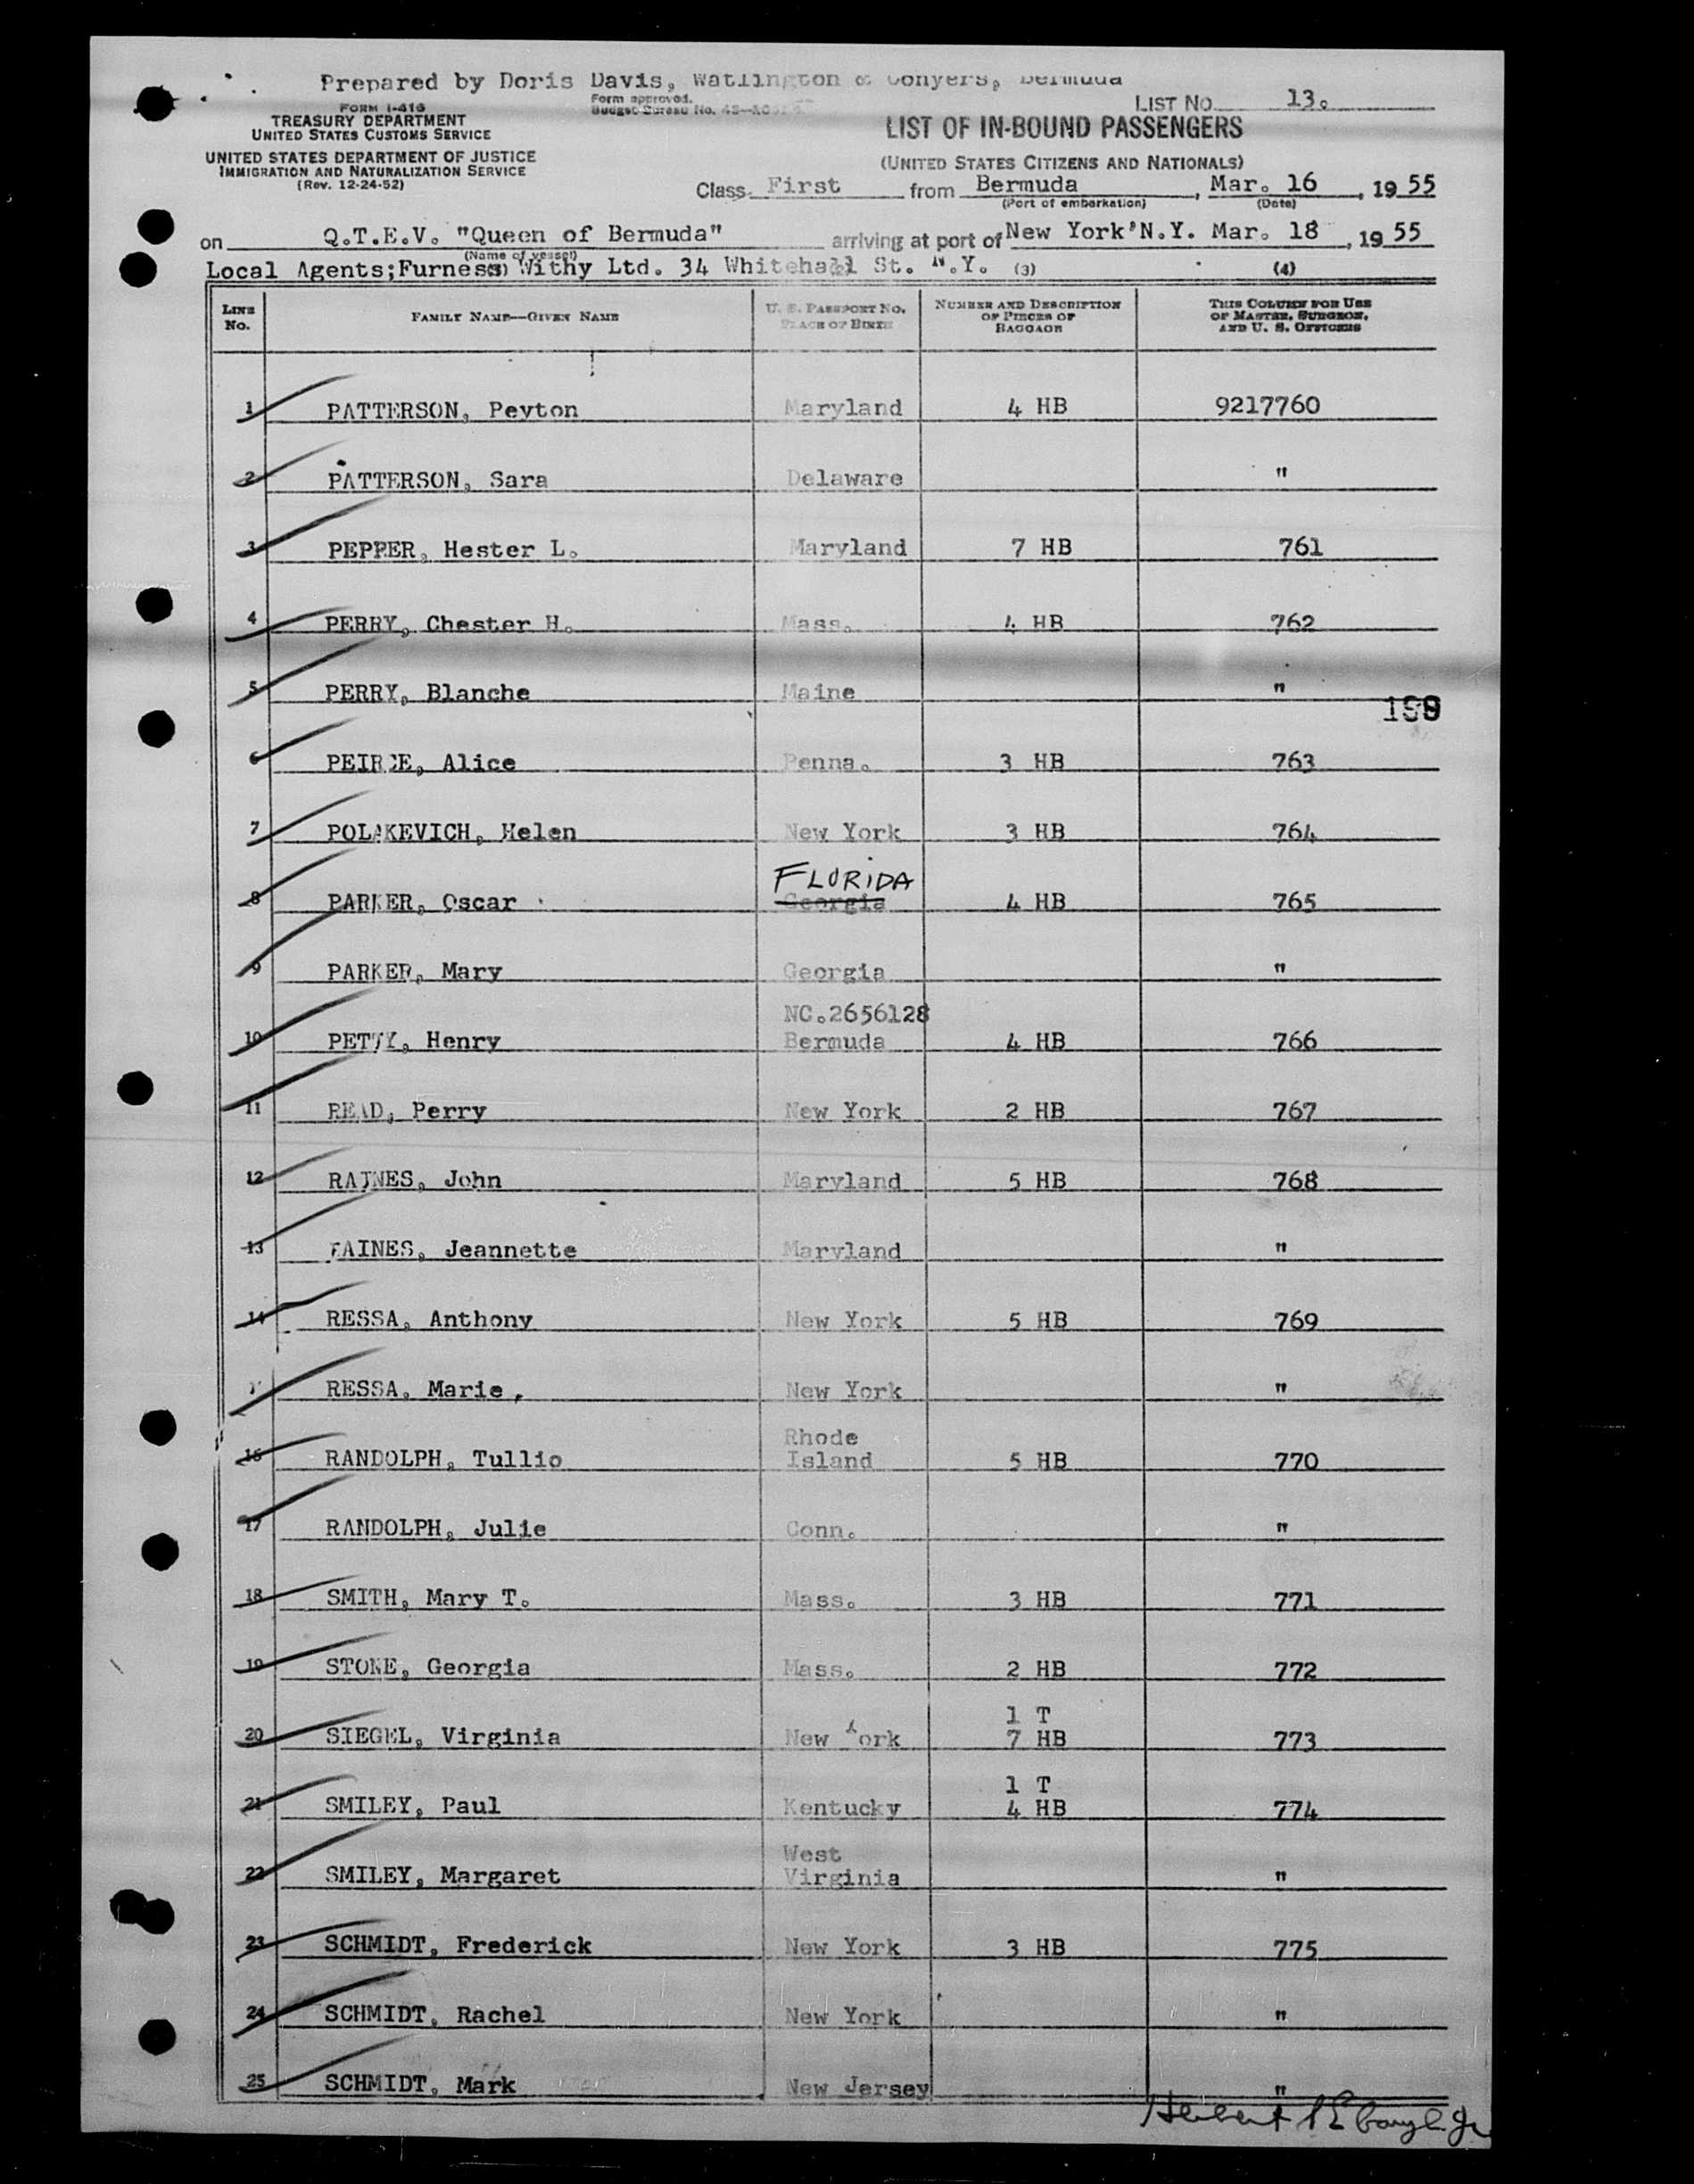 Prepared by Doris Davis, Watlington & Conyers, Bermuda
FORM I-416
TREASURY DEPARTMENT
UNITED STATES CUSTOMS SERVICE
UNITED STATES DEPARTMENT OF JUSTICE
IMMIGRATION AND NATURALIZATION SERVICE
(Rev. 12-24-52)
Form approved.
Budget Bureau No.
LIST No. 13.
LIST OF IN-BOUND PASSENGERS
(UNITED STATES CITIZENS AND NATIONALS)
Class First from Bermuda, Mar. 16, 19 55
(Port of embarkation) (Date)
on Q.T.E.V. "Queen of Bermuda" arriving at port of New York'N.Y. Mar. 18, 19 55
(Name of vessel)
Local Agents;Furness Withy Ltd. 34 Whitehall St. N.Y. (3) (4)
LINE No. FAMILY NAME—GIVEN NAME U. S. PASSPORT NO. PLACE OF BIRTH NUMBER AND DESCRIPTION OF PIECES OF BAGGAGE THIS COLUMN FOR USE OF MASTER, SURGEON, AND U. S. OFFICERS
1 PATTERSON, Peyton Maryland 4 HB 9217760
2 PATTERSON, Sara Delaware "
3 PEPPER, Hester L. Maryland 7 HB 761
4 PERRY, Chester H. Mass. 4 HB 762
5 PERRY, Blanche Maine "
199
6 PEIRCE, Alice Penna. 3 HB 763
7 POLAKEVICH, Helen New York 3 HB 764
FLORIDA
8 PARKER, Oscar Georgia 4 HB 765
9 PARKER, Mary Georgia "
NC.2656128
10 PETTY, Henry Bermuda 4 HB 766
11 READ, Perry New York 2 HB 767
12 RAINES, John Maryland 5 HB 768
13 RAINES, Jeannette Maryland "
14 RESSA, Anthony New York 5 HB 769
RESSA, Marie, New York "
Rhode
16 RANDOLPH, Tullio Island 5 HB 770
17 RANDOLPH, Julie Conn. "
18 SMITH, Mary T. Mass. 3 HB 771
19 STONE, Georgia Mass. 2 HB 772
1 T
20 SIEGEL, Virginia New York 7 HB 773
1 T
21 SMILEY, Paul Kentucky 4 HB 774
West
22 SMILEY, Margaret Virginia "
23 SCHMIDT, Frederick New York 3 HB 775
24 SCHMIDT, Rachel New York "
25 SCHMIDT, Mark New Jersey "
Herbert